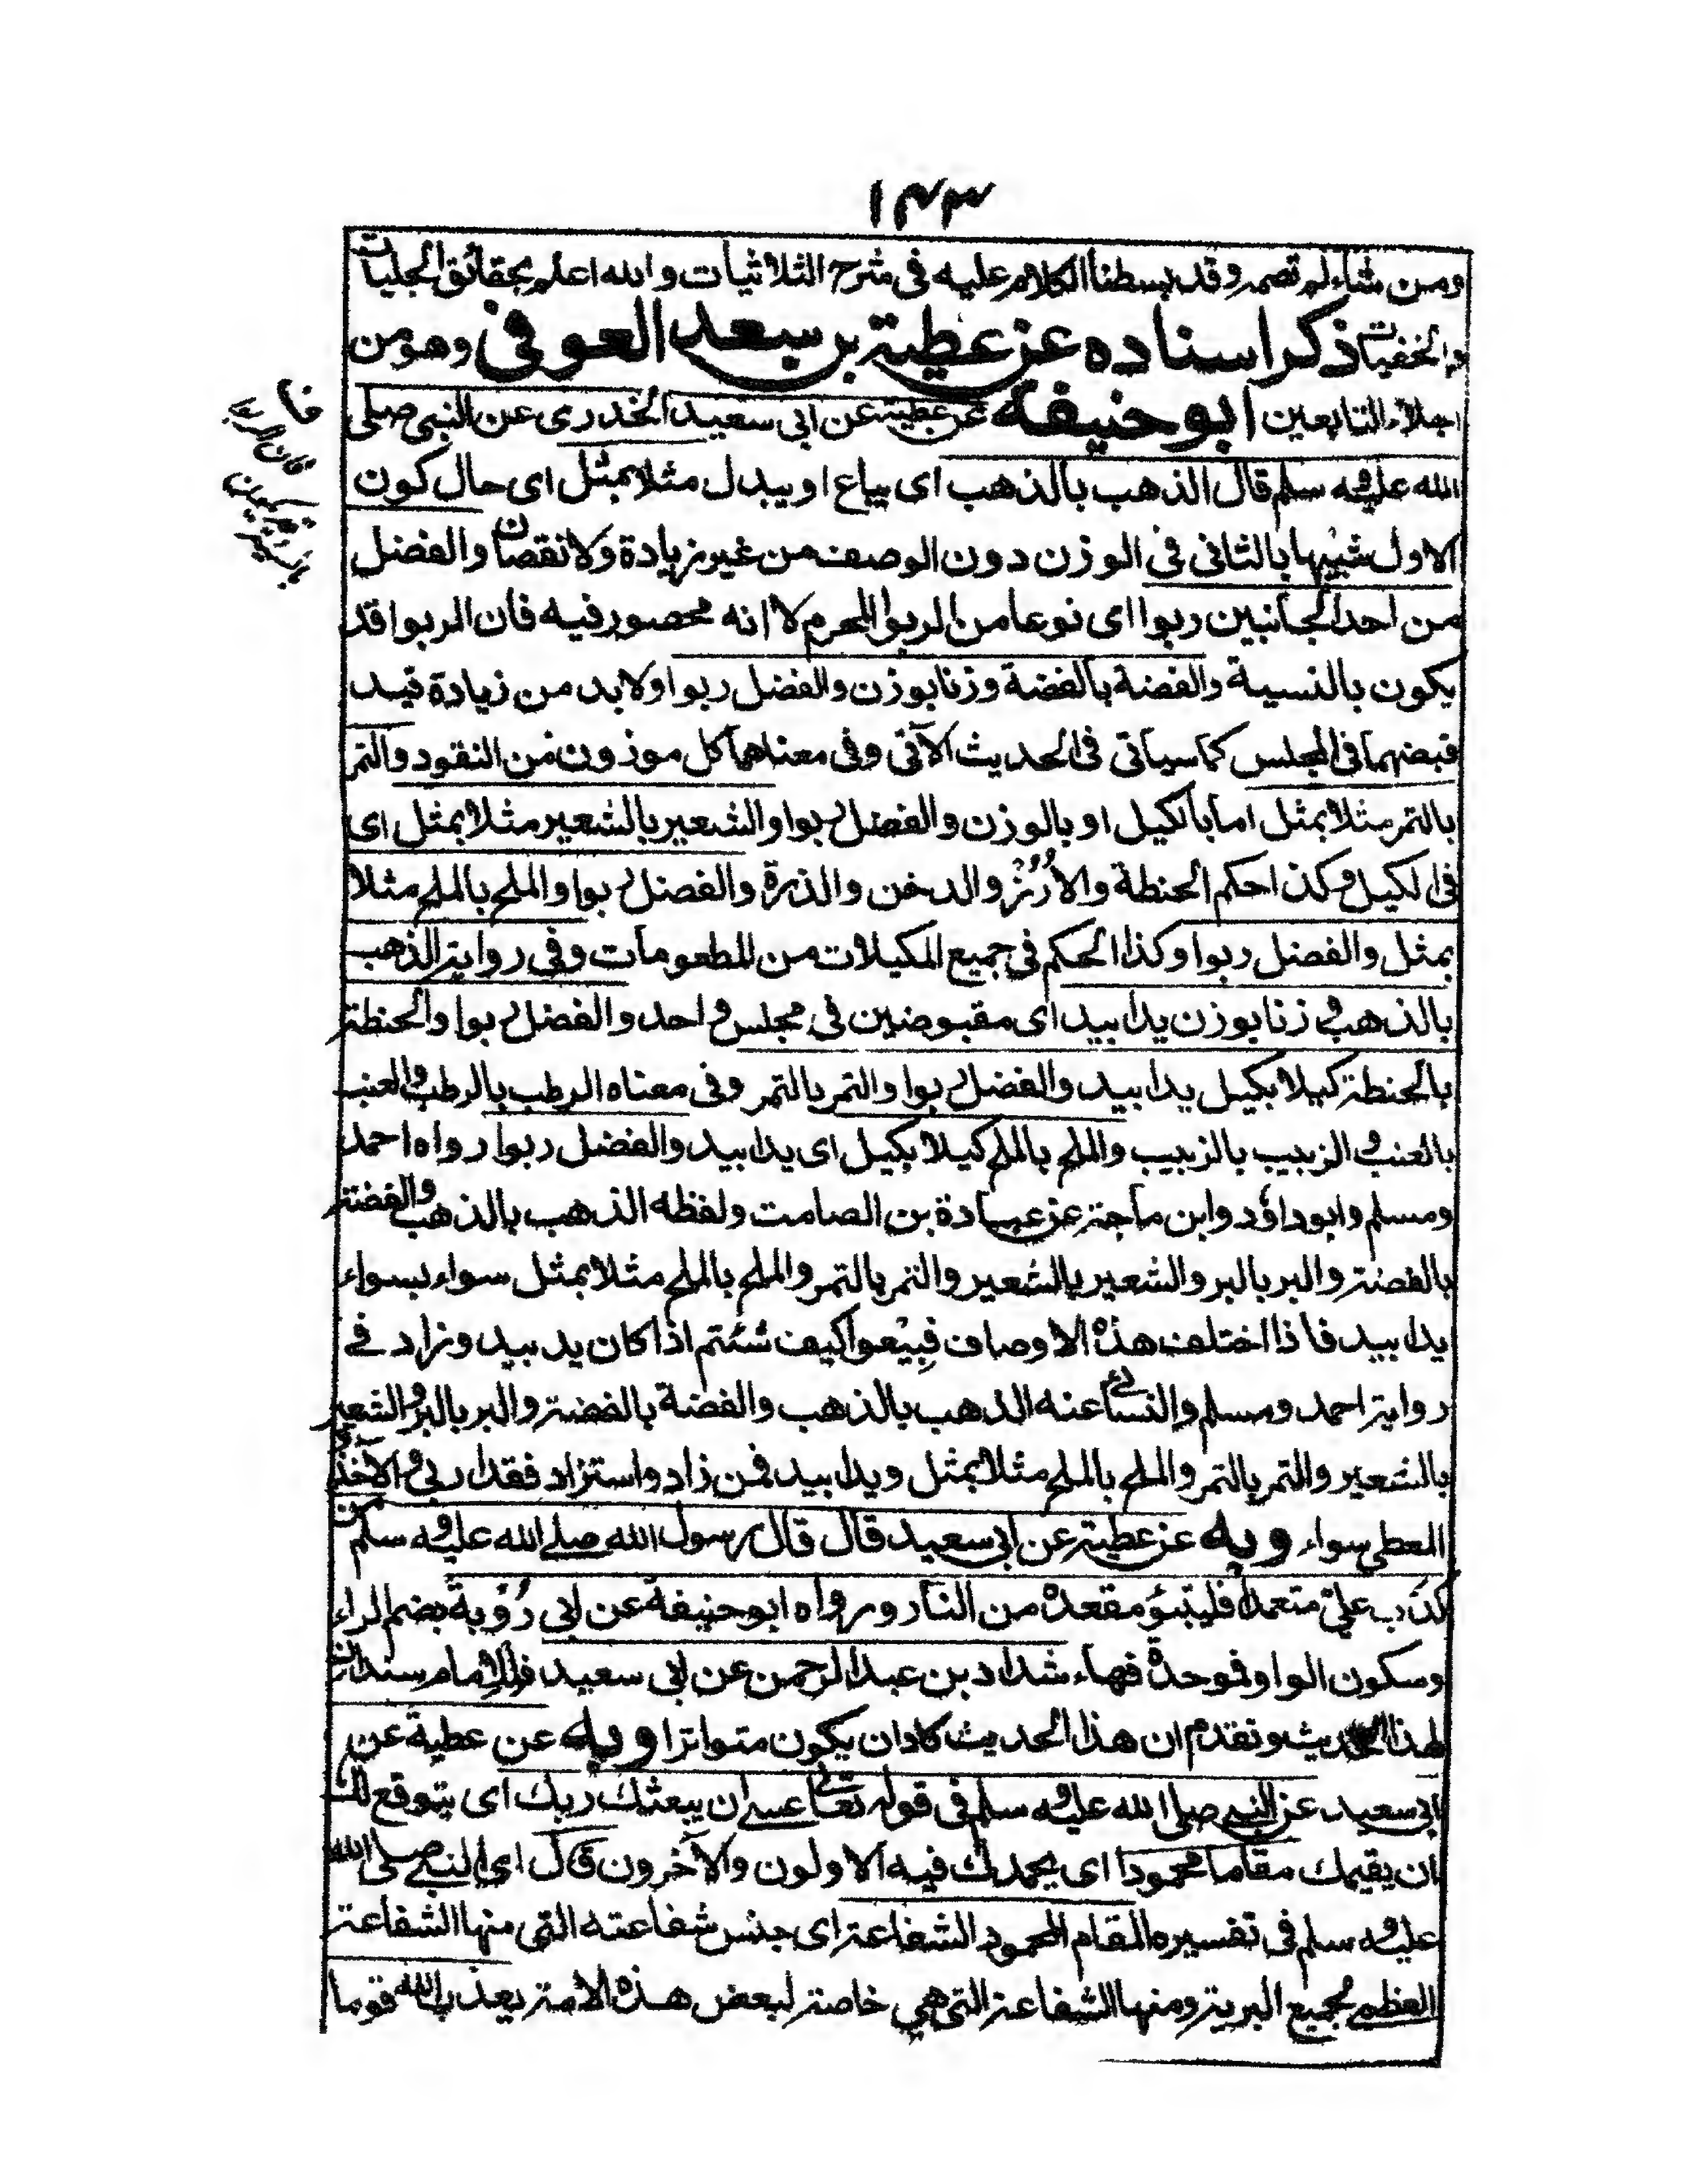 ١٤٣
ومن شاء لم تصمه وقد بسطنا الكلام عليه في شرح الثلاثيات والله اعلم بحقائق الجليات
والخفيات ذكر اسناده عن عطية بن سعد العوفي وهو من
اجلاء التابعين ابو حنيفة عن عطية عن ابي سعيد الخدري عن النبي صلى
الله عليه وسلم قال الذهب بالذهب اى يباع او يبدل مثلا بمثل اى حال كون
الاول شبيها بالثاني في الوزن دون الوصف من غير زيادة ولا نقصان والفضل
من احد الجانبين ربوا اى نوعا من الربوا المحرم لا انه محصور فيه فان الربوا قد
يكون بالنسية والفضة بالفضة وزنا بوزن والفضل ربوا ولا بد من زيادة قيد
قبضهما في المجلس كما سياتي في الحديث الآتي وفي معناهما كل موزون من النقود والتمر
بالتمر مثلا بمثل اما بالكيل او بالوزن والفضل ربوا والشعير بالشعير مثلا بمثل اى
في الكيل وكذا حكم الحنطة والأرُزّ والدخن والذرة والفضل ربوا والملح بالملح مثلا
بمثل والفضل ربوا وكذا الحكم في جميع المكيلات من المطعومات وفي رواية الذهب
بالذهب وزنا بوزن يدا بيد اى مقبوضين في مجلس واحد والفضل ربوا والحنطة
بالحنطة كيلا بكيل يدا بيد والفضل ربوا والتمر بالتمر وفي معناه الرطب بالرطب والعنب
بالعنب والزبيب بالزبيب والملح بالملح كيلا بكيل اى يدا بيد والفضل ربوا رواه احمد
ومسلم وابو داؤد وابن ماجة عن عبادة بن الصامت ولفظه الذهب بالذهب والفضة
بالفضة والبر بالبر والشعير بالشعير والتمر بالتمر والملح بالملح مثلا بمثل سواء بسواء
يدا بيد فاذا اختلف هذه الاوصاف فبيعوا كيف شئتم اذا كان يد بيد وزاد في
رواية احمد ومسلم والنسائى عنه الذهب بالذهب والفضة بالفضة والبر بالبر والشعير
بالشعير والتمر بالتمر والملح بالملح مثلا بمثل ويدا بيد فمن زاد واستزاد فقد اربى والآخذ و
المعطى سواء وبه عن عطية عن ابي سعيد قال قال رسول الله صلى الله عليه وسلم من
كذب على متعمدا فليتبوء مقعده من النار ورواه ابو حنيفة عن ابي رُؤبة بضم الراء
وسكون الواو فموحدة فهاء شداد بن عبد الرحمن عن ابي سعيد فللامام سندان
لهذا الحديث وتقدم ان هذا الحديث كاد ان يكون متواترا وبه عن عطية عن
ابي سعيد عن النبي صلى الله عليه وسلم في قوله تعالى عسى ان يبعثك ربك اى يتوقع لك
ان يقيمك مقاما محمودا اى يحمدك فيه الاولون والآخرون قال اى النبي صلى الله
عليه وسلم في تفسيره المقام المحمود الشفاعة اى جنس شفاعته التي منها الشفاعة
العظمى لجميع البرية ومنها الشفاعة التي هي خاصة لبعض هذه الامة يعذب الله قوما